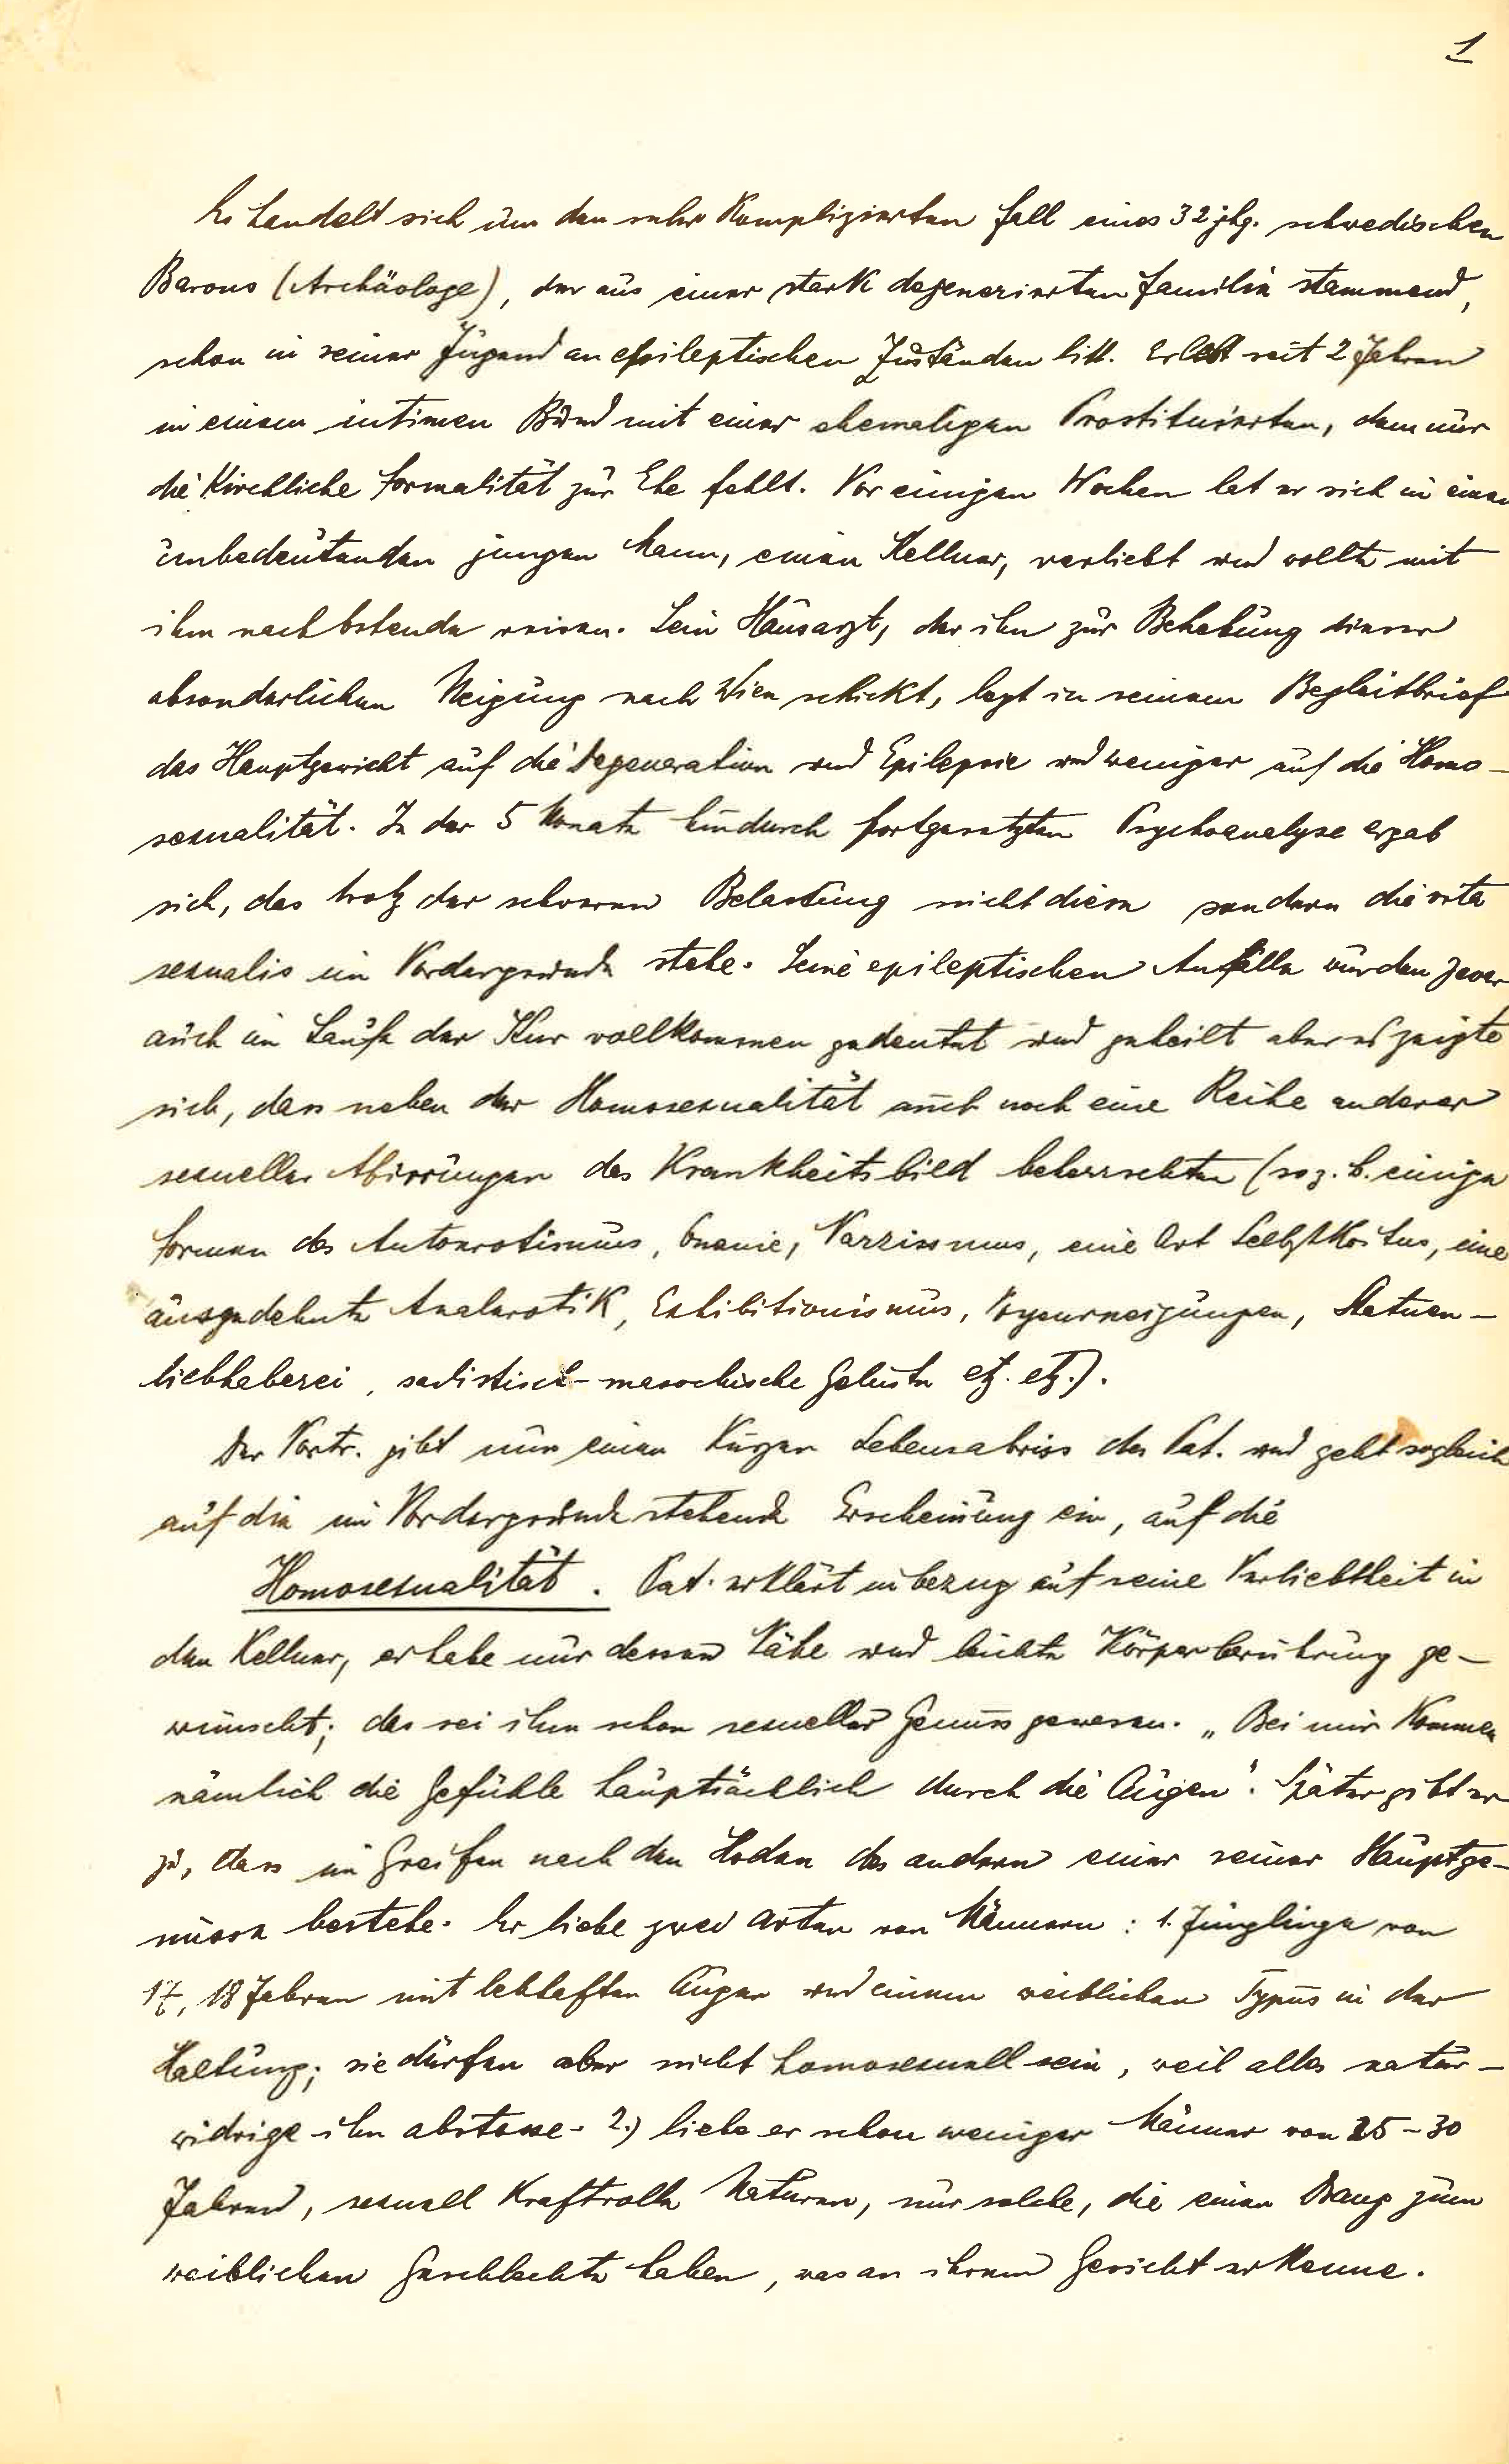 1
Es handelt sich um den sehr komplizierten Fall eines 32 jhg. schwedischen
Barons (Archäologe), der aus einer stark degenerierten Familie stammend,
schon in seiner Jugend an epileptischen Zuständen litt. Er lebt seit 2 Jahren
in einem intimen Bund mit einer ehemaligen Prostituierten, dem nur
die kirchliche Formalität zur Ehe fehlt. Vor einigen Wochen hat er sich in einen
unbedeutenden jungen Mann, einen Kellner, verliebt und wollte mit
ihm nach Ostende reisen. Sein Hausarzt, der ihn zur Behebung dieser
absonderlichen Neigung nach Wien schickt, legt in seinem Begleitbrief
das Hauptgewicht auf die Degeneration und Epilepsie und weniger auf die Homo-
sexualität. In der 5 Monate hindurch fortgesetzten Psychoanalyse ergab
sich, das trotz der schweren Belastung nicht diese sondern die vita
sexualis im Vordergrunde stehe. Seine epileptischen Anfälle wurden zwar
auch im Laufe der Kur vollkommen gedeutet und geheilt aber es zeigte
sich, dass neben der Homosexualität auch noch eine Reihe anderer
sexueller Abirrungen das Krankheitsbild beherrschten (so z. b. einige
Formen des Autoerotismus, Onanie, Narzissmus, eine Art Selbstkoitus, eine
ausgedehnte Analerotik, Exhibitionismus, Voyeurneigungen, Statuen-
liebhaberei, sadistisch-masochische Gelüste etz. etz.).
Der Vortr. gibt nun einen kurzen Lebensabriss des Pat. und geht sogleich
auf die im Vordergrunde stehende Erscheinung ein, auf die
Homosexualität. Pat. erklärt in bezug auf seine Verliebtheit in
den Kellner, er habe nur dessen Nähe und leichte Körperberührung ge-
wünscht; das sei ihm schon sexueller Genuss gewesen. „Bei mir kommen
nämlich die Gefühle hauptsächlich durch die Augen". Später gibt er
zu, dass im Greifen nach den Hoden des andern einer seiner Hauptge-
nüsse bestehe. Er liebe zwei Arten von Männern: 1. Jünglinge von
17, 18 Jahren mit lebhaften Augen und einem weiblichen Typus in der
Haltung; sie dürfen aber nicht homosexuell sein, weil alles natur-
widrige ihn abstosse. 2.) liebe er schon weniger Männer von 25-30
Jahren, sexuell kraftvolle Naturen, nur solche, die einen Drang zum
weiblichen Geschlechte haben, was an ihrem Gesicht erkenne.